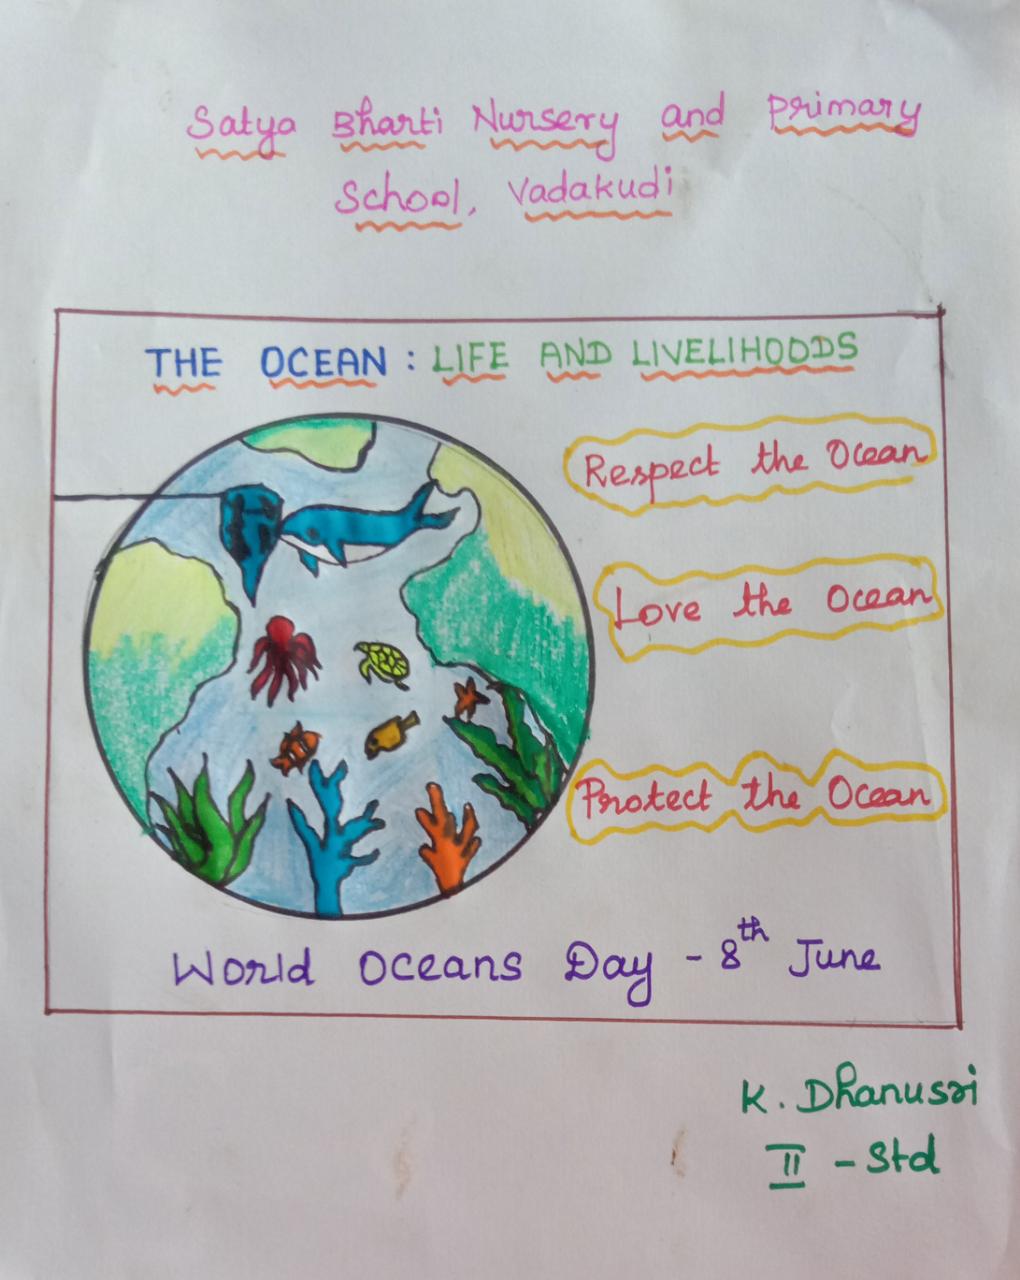 Satya Bharti Nursery and Primary
School, Vadakudi
THE OCEAN : LIFE AND LIVELIHOODS
Respect the Ocean
Love the Ocean
Protect the Ocean
World Oceans Day - 8th June
K. Dhanusri
II - Std